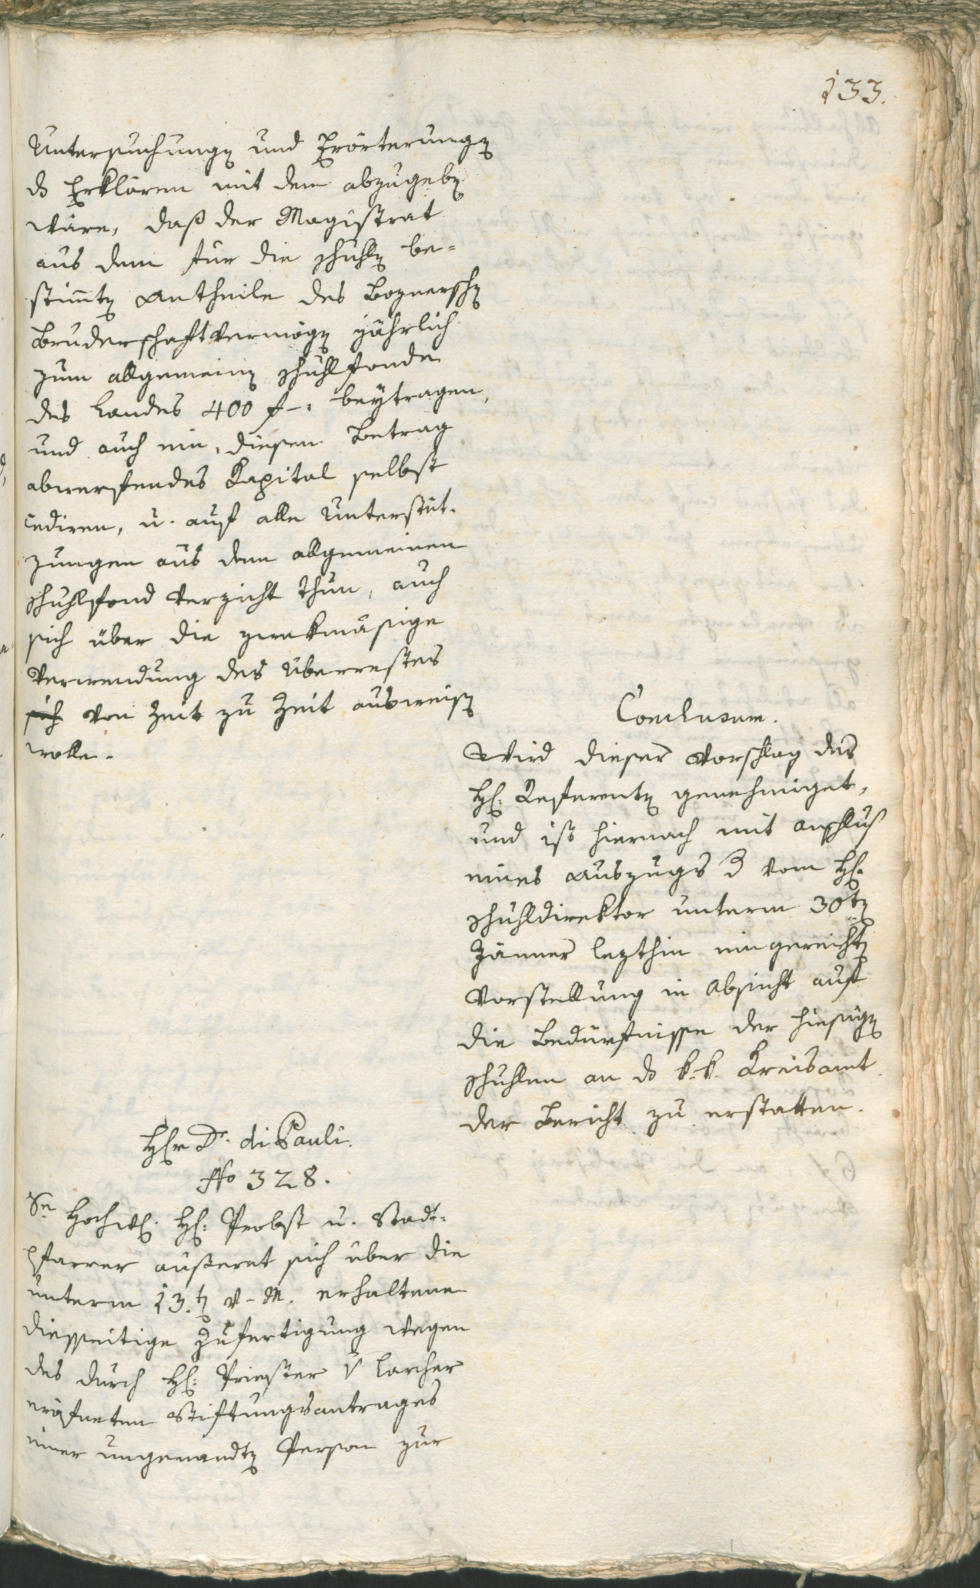 133.
Untersuchungen und Erörterungen
das Erklären mit dem abzugeben
wäre, daß der Magistrat
aus dem für die Schulen be-
stimten Antheile des Boznerischen
Bruderschaftvermögen jährlich
zum allgemeinen Schuhlfonde
des Landes 400 f –: beytragen,
und auch ein, diesen Betrag
abwerfendes Kapital selbst
cediren, u. auf alle Unterstüt-
zungen aus dem allgemeinen
Schuhlfond Verzicht thun, auch
sich über die zwekmäsige
Verwendung des Überrestes
sich von Zeit zu Zeit ausweisen
wolle.
Conclusum.
Wird dieser Vorschlag des
H: Referenten genehmiget,
und ist hiernach mit Anschluß
eines Auszugs der vom H:
Schuhldirektor unterm 30ten
Jänner lezthin eingereichten
Vorstellung in Absicht auf
die Bedürfnisse der hiesigen
Schuhlen an das k. k. Kreisamt
der Bericht zu erstatten.
Herr Dr. di Pauli.
No 328.
Se Hochw. H: Probst u. Stadt-
pfarrer äußeret sich über die
unterm 13.ten v. M. erhaltene
diesseitige Zufertigung wegen
des durch H: Priester v Larcher
eröfneten Stiftungsantrages
einer ungenandten Person zur